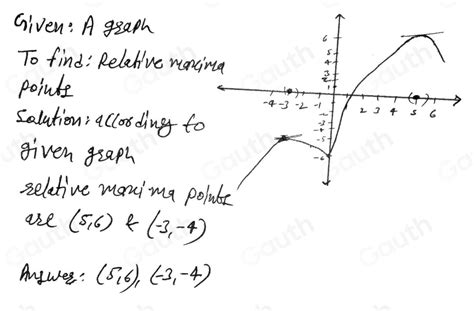 Given: A graph
To find: Relative maxima
points
Solution: according to
given graph
relative maxima points
are (5,6) & (-3,-4)
Answer: (5,6), (-3,-4)
6
5
4
3
-4 -3 -2 -1
2 3 4 5 6
-6
Gauth